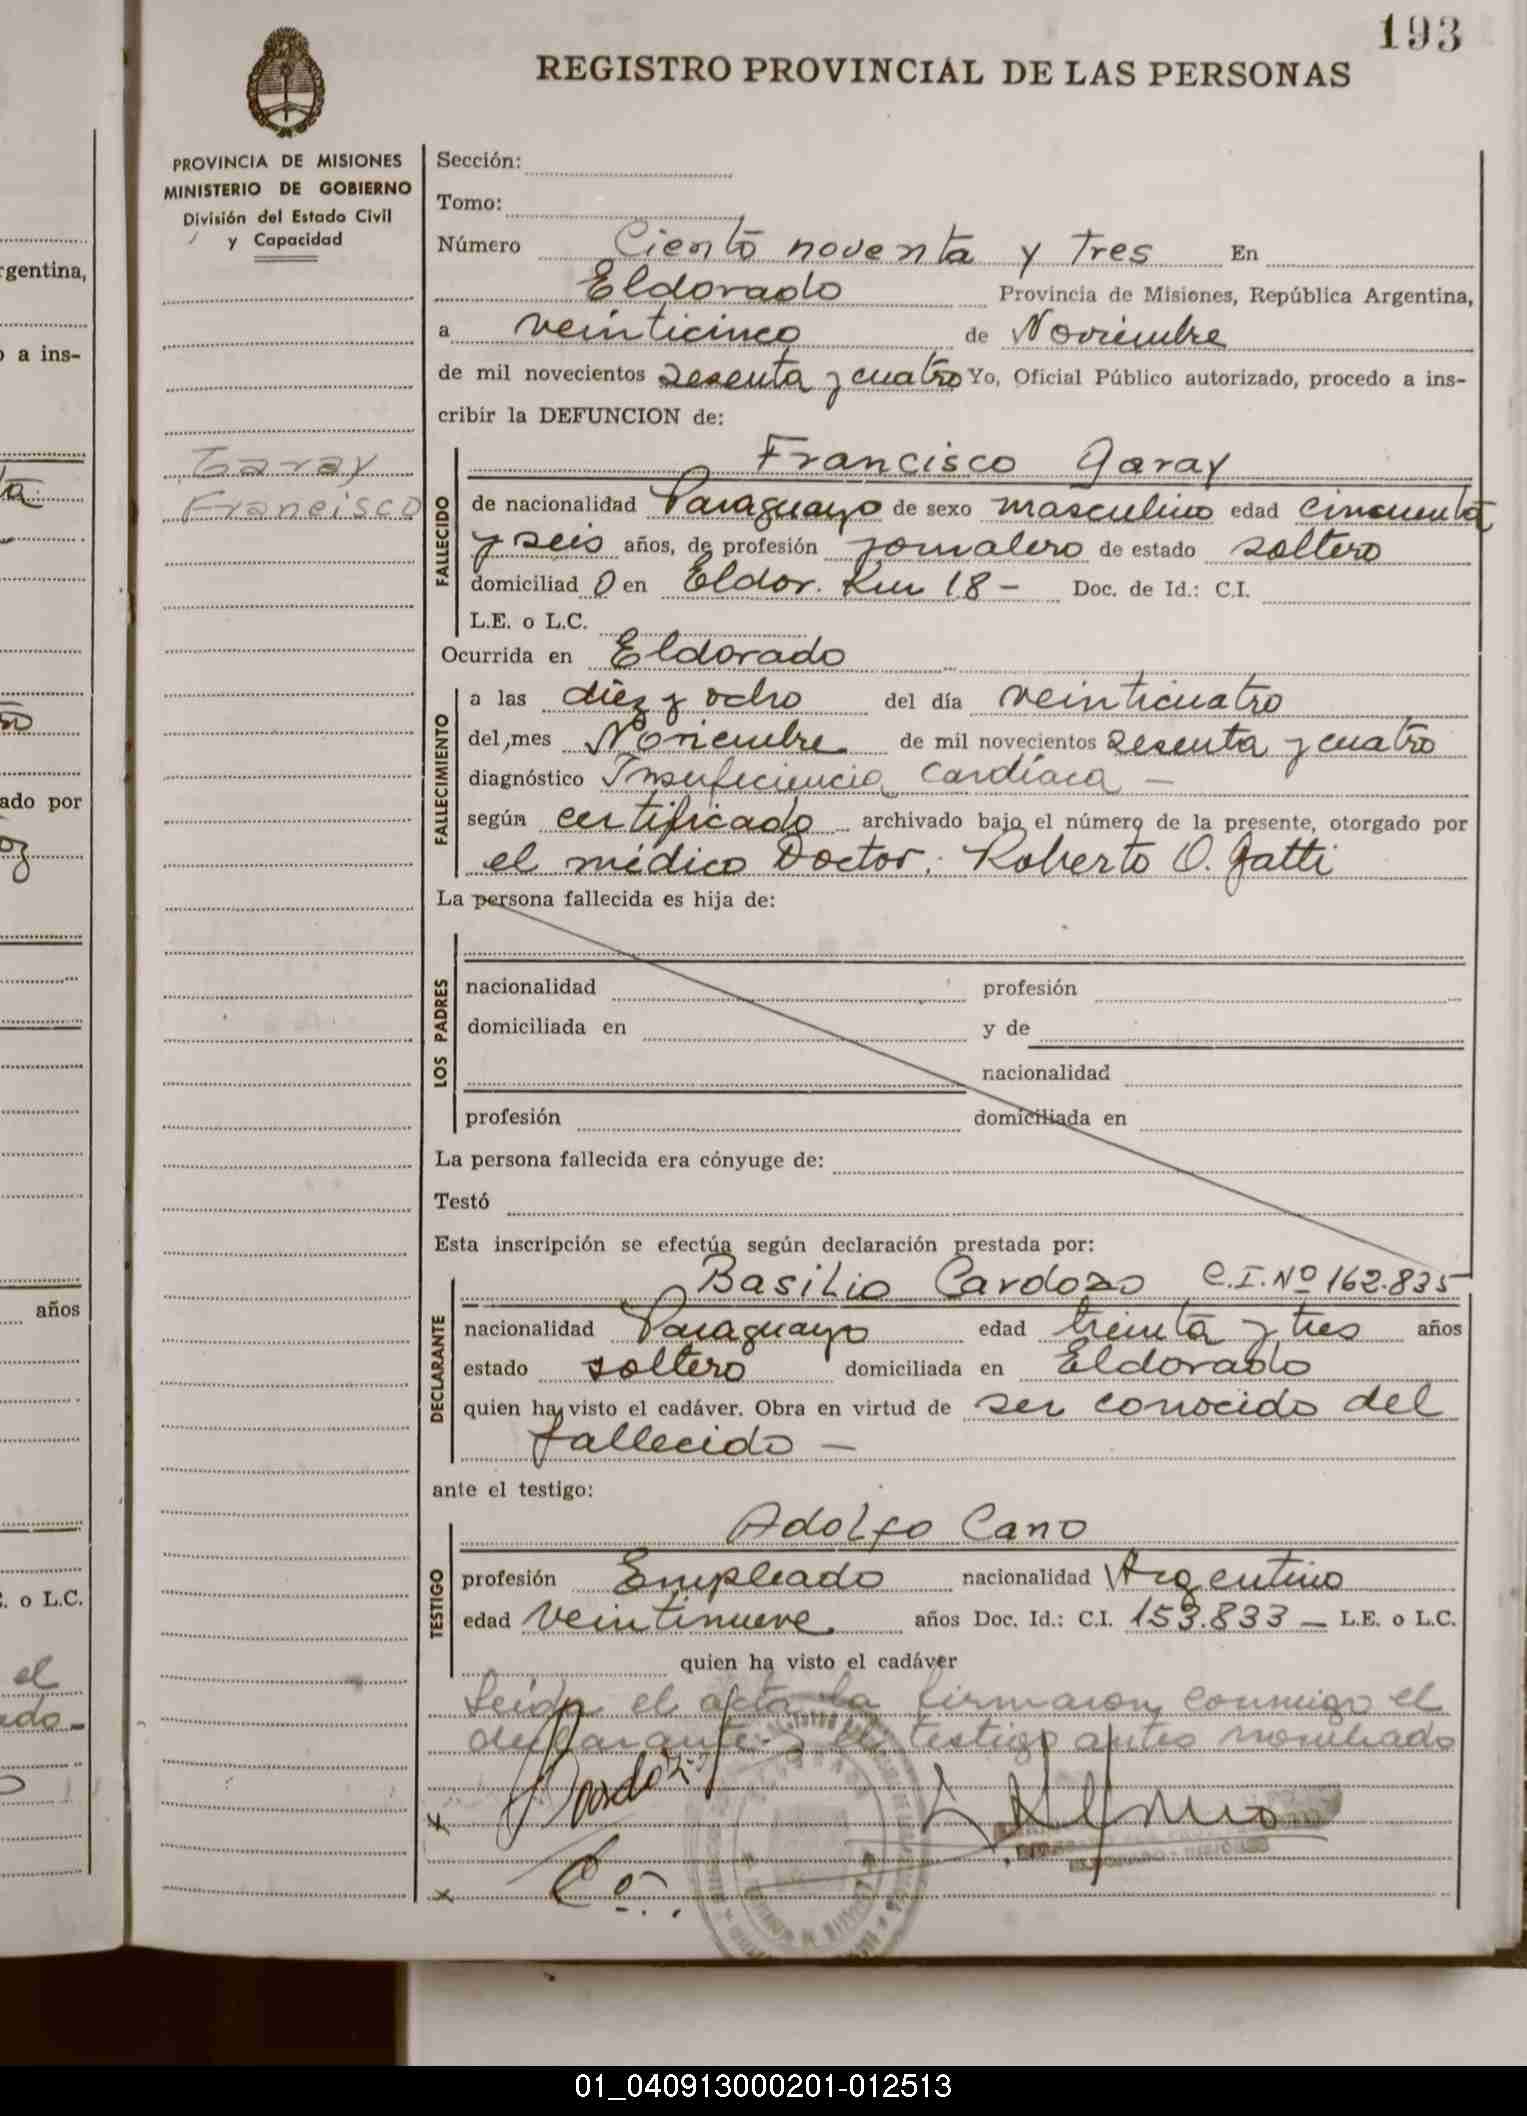 193
REGISTRO PROVINCIAL DE LAS PERSONAS
PROVINCIA DE MISIONES
MINISTERIO DE GOBIERNO
División del Estado Civil
y Capacidad
Garay
Francisco
Sección:
Tomo:
Número Ciento noventa y tres En
Eldorado Provincia de Misiones, República Argentina,
a veinticinco de Noviembre
de mil novecientos sesenta y cuatro Yo, Oficial Público autorizado, procedo a ins-
cribir la DEFUNCION de:
FALLECIDO
Francisco Garay
de nacionalidad Paraguayo de sexo masculino edad cincuenta
y seis años, de profesión jornalero de estado soltero
domiciliad o en Eldor. Km 18 - Doc. de Id.: C.I.
L.E. o L.C.
Ocurrida en Eldorado
FALLECIMIENTO
a las diez y ocho del día veinticuatro
del mes Noviembre de mil novecientos sesenta y cuatro
diagnóstico Insuficiencia Cardíaca -
según certificado archivado bajo el número de la presente, otorgado por
el médico Doctor: Roberto O. Gatti
La persona fallecida es hija de:
LOS PADRES
nacionalidad profesión
domiciliada en y de
nacionalidad
profesión domiciliada en
La persona fallecida era cónyuge de:
Testó
Esta inscripción se efectúa según declaración prestada por:
DECLARANTE
Basilio Cardozo C.I. Nº 162.835
nacionalidad Paraguayo edad treinta y tres años
estado soltero domiciliada en Eldorado
quien ha visto el cadáver. Obra en virtud de ser conocido del
fallecido -
ante el testigo:
TESTIGO
Adolfo Cano
profesión Empleado nacionalidad Argentino
edad veintinueve años Doc. Id.: C.I. 153.833 - L.E. o L.C.
quien ha visto el cadáver
Leída el acta la firmaron conmigo el
declarante y el testigo antes nombrado
x
x
rgentina,
o a ins-
ado por
años
o L.C.
el
ado-
01_040913000201-012513